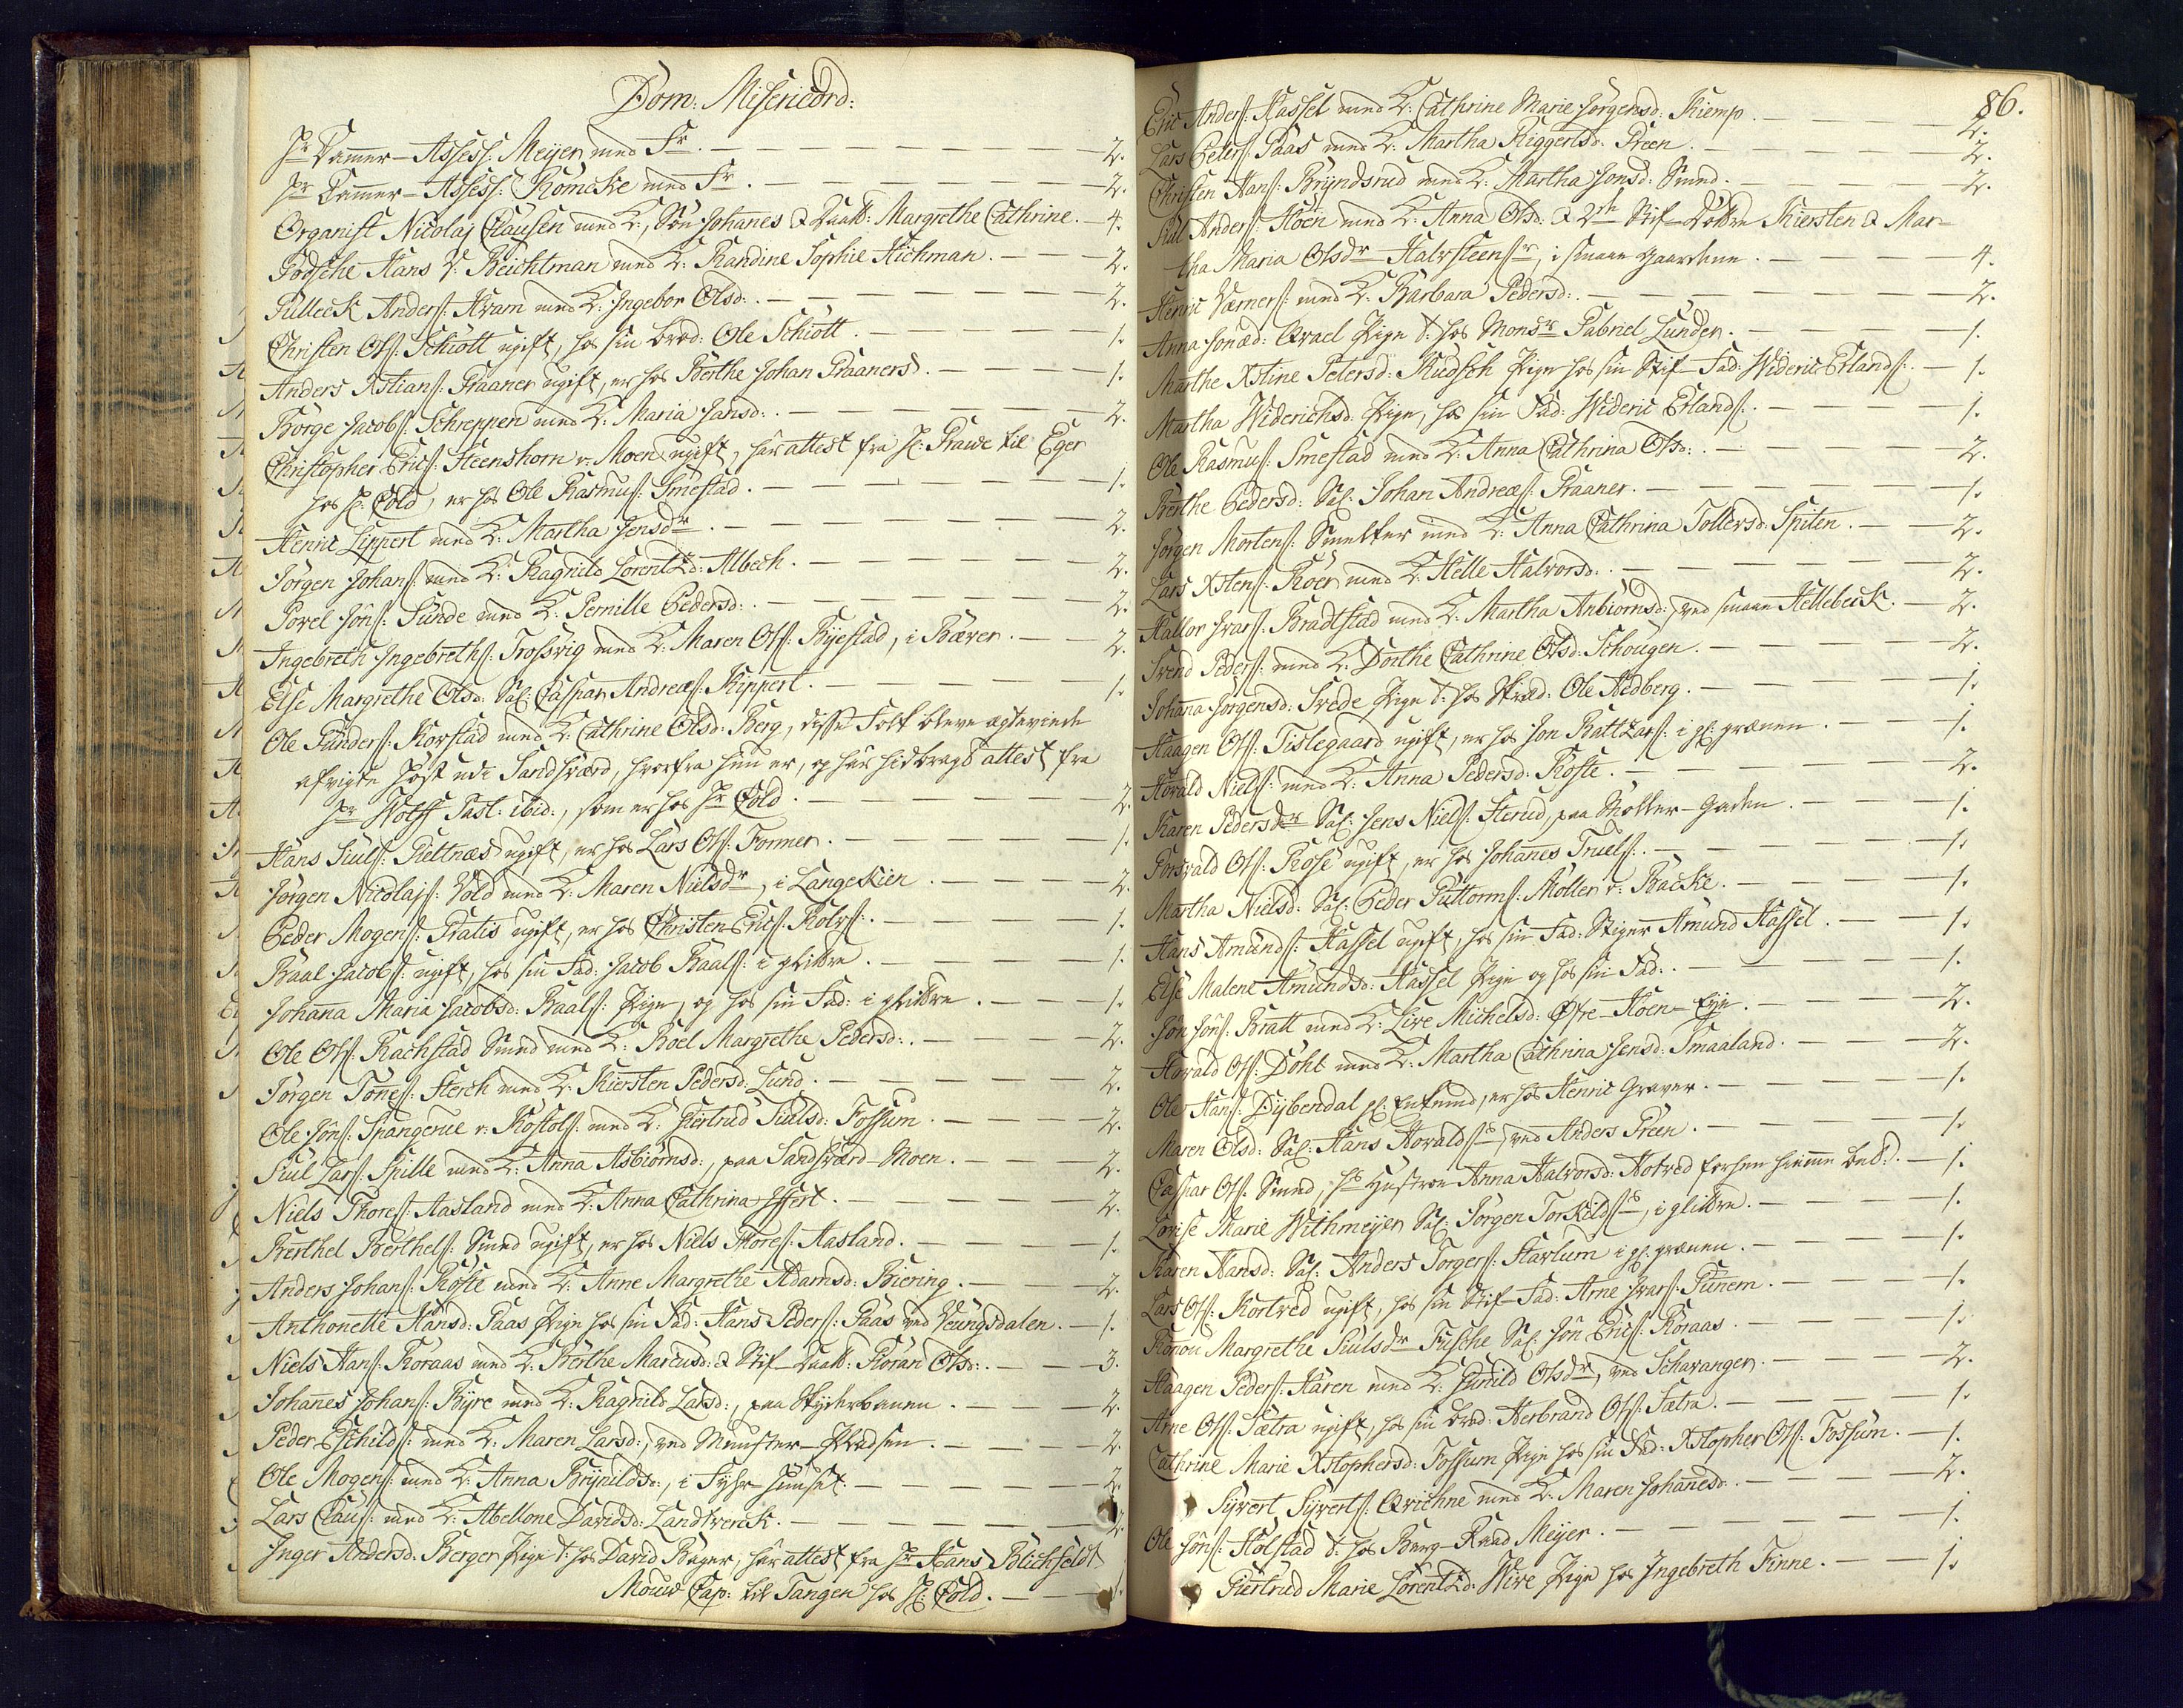 Dom: Misericord:
Hr Cammer-Assess: Meyer med Fr. 2.
Hr Cammer-Assess: Chömcke med Fr. 2.
Organist Nicolaj Clausen med K:, Søn Johanes & Daatt: Margrethe Cathrine. 4.
Hans V: Beichtman med K: Randine Sophie Hichman. 2.
Gulleck Anders: Hvam med K: Ingebor Olsd: 2.
Christen Ols: Schiött ugift, hos sin brod: Ole Schiött. 1.
Anders Xstians: Praaner ugift, er hos Berthe Johan Praaners. 1.
Börge Jacobs: Schreppen med K: Maria Jansd: 2.
Christopher Erics: Steenshorn v: Moen ugift, har attest fra Hr: Grawe til Eger
hos Hr: Cold, er hos Ole Rasmus: Smestad. 1.
Henric Lippert med K: Martha Jensdr. 2.
Jörgen Johans: med K: Ragnild Lorentzd: Albech. 2.
Povel Jöns: Sunde med K: Pernille Pedersd: 2.
Ingebreth Ingebreths: Trossvig med K: Maren Ols: Byestad, i Bæver. 2.
Else Margrethe Olsd: Sal: Caspar Andreæs: Kippert. 1.
Ole Gunders: Korstad med K: Cathrine Olsd: Berg, disse Folk bleve ægteviede
afvigte Høst udi Sandsværd, hvorfra hun er, og har hidbragt attest fra
Hr Wolff Past: ibid:, som er hos Hr Cold. 2.
Hans Siuls: Glettnæs ugift, er hos Lars Ols: Former. 1.
Jörgen Nicolajs: Vold med K: Maren Nielsdr, i Langeskien. 2.
Peder Mogens: Gratis ugift, er hos Christen Erics: Rolvs: 1.
Baal Jacobs: ugift, hos sin Fad: Jacob Baals: i glittre. 1.
Johana Maria Jacobsd: Baals: Pige, og hos sin Fad: i glittre. 1.
Ole Ols: Rachstad Smed med K: Boel Margrethe Pedersd: 2.
Jörgen Tönes: Sterch med K: Kiersten Pedersd: Lund. 2.
Ole Jöns: Spangerue v: Kostols: med K: Giertrud Siulsd: Fossum. 2.
Siul Lars: Spille med K: Anna Asbiörnsd:, paa Sandsværd-Moen. 2.
Niels Thores: Aasland med K: Anna Cathrina Iffert. 2.
Berthel Berthels: Smed ugift, er hos Niels Thores: Aasland. 1.
Anders Johans: Koste med K: Anne Margrethe Adamsd: Biering. 2.
Anthonette Hansd: Paas Pige hos sin Fad: Hans Peders: Paas ved Jeungsdalen. 1.
Niels Hans: Roraas med K: Berthe Marcusd: & Stif-Daatt: Giöran Olsd: 3.
Johanes Johans: Byre med K: Ragnild Larsd:, paa Skyderbanen. 2.
Peder Eschilds: med K: Maren Larsd:, ved Mynster-Pladsen. 2.
Ole Mogens: med K: Anna Brynildsd:, i Fyhr huuset. 2.
Lars Claus: med K: Abellone Davidsd: Landsverck. 2.
Inger Andersd: Berger Pige t: hos David Bager, har attest fra Hr Hans Blichfeldt
Cap: til Tangen hos Hr: Cold.
86.
Eric Anders: Hassel med K: Cathrine Marie Jörgensd: Kiemp. 2.
Lars Peters: Paas med K: Martha Riggertsd: Preen. 2.
Christen Hans: Bryndsrud med K: Martha Jonsd: Smed. 2.
Anders: Hoen med K: Anna Olsd: & 2de Stif-Döttre Kiersten & Mar-
tha Maria Olsdr Halvsteensr, i smaae gaardene. 4.
Henric Værners: med K: Barbara Pedersd: 2.
Anna Jonæd: Qvael Pige t: hos Monsr Gabriel Lunder. 1.
Marthe Xstine Petersd: Rudsch Pige hos sin Stif-Fad: Wideric Erlands: 1.
Martha Widerichsd: Pige, hos sin Fad: Wideric Erlands: 1.
Ole Rasmus: Smestad med K: Anna Cathrina Olsd: 2.
Berthe Pedersd: Sal: Johan Andreæs: Praaner. 1.
Jörgen Mortens: Smelter med K: Anna Cathrina Tollersd: Spiten. 2.
Lars Xstens: Roer med K: Helle Halvorsd: 2.
Hallor Ivars: Bradtstad med K: Martha Anbiörnsd:, ved smaae Hellebeck. 2.
Svend Peders: med K: Dorthe Cathrine Olsd: Schougen. 2.
Johana Jorgensd: Svede Pige t: hos Skræd: Ole Hedberg. 1.
Haagen Ols: Tislegaard ugift, er hos Jon Baltzars: i gl: grænen. 1.
Havald Niels: med K: Anna Pedersd: Koste. 2.
Karen Pedersdr Sal: Jens Niels: Sterud, paa Møller-Gaden. 1.
Torsvald Ols: Rose ugift, er hos Johanes Truels: 1.
Martha Nielsd: Sal: Peder Guttorms: Möller v: Backe. 1.
Hans Amunds: Hassel ugift, hos sin Fad: Stiger Amund Hassel. 1.
Else Malene Amundsd: Hassel Pige og hos sin Fad: 1.
Jön Jöns: Bratt med K: Live Michelsd: Øfre-Hoen-Eye. 2.
Havald Ols: Döhl med K: Martha Cathrina Jensd: Smaaland. 2.
Ole Hans: Dybendal gl: Enkemd, er hos Henric Graver. 1.
Maren Olsd: Sal: Hans Havaldss, ved Anders Preen. 1.
Caspar Ols: Smed, hs Hustroe Anna Halvorsd: Hotved forhen hiemme bet: 1.
Lovise Marie Withmeyer Sal: Jörgen Torkildss, i glittre. 1.
Karen Hansd: Sal: Anders Torgers: Harlum i gl: grænen. 1.
Lars Ols: Kortved ugift, hos sin Stif-Fad: Arne Ivars: Gunem. 1.
Ronou Margrethe Siulsdr Fusche Sal: Jön Erics: Roraas. 1.
Haagen Peders: Haren med K: Gunild Olsdr, ved Schavangen. 2.
Arne Ols: Sætra ugift, hos sin brod: Herbrand Ols: Sætra. 1.
Cathrine Marie Xstophersd: Fossum Pige hos sin Fad: Xstopher Ols: Fossum. 1.
Syvert Syverts: Qvichne med K: Maren Johanesd: 2.
Ole Jöns: Holstad t: hos Berg-Raad Meyer. 1.
Giertrud Marie Lorentzd: Wive Pige hos Ingebreth Finne. 1.